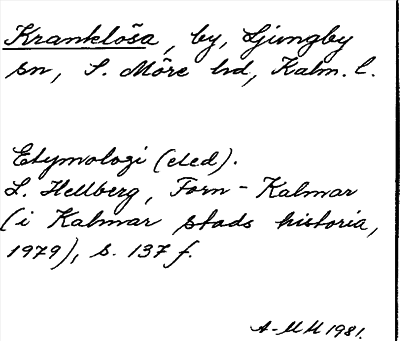 Kranklösa, by, Ljungby
sn, S. Möre hd, Kalm. l.
Etymologi (eled).
L. Hellberg, Forn-Kalmar
(i Kalmar stads historia,
1979), s. 137 f.
A-MH 1981.